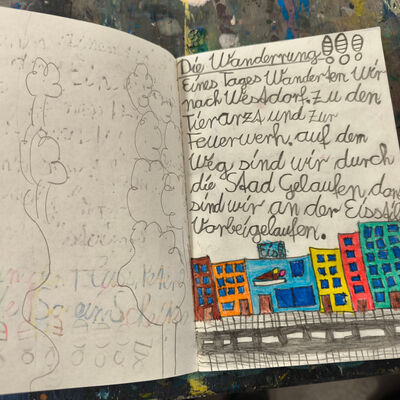 Die Wanderrung!!!
Eines Tages Wanderten wir
nach Westdorf. Zu den
Tierarzt und zur
Feuerwerh. auf dem
Weg sind wir durch
die Stad Gelaufen dan
sind wir an der
Vorbeigelaufen.
Eis